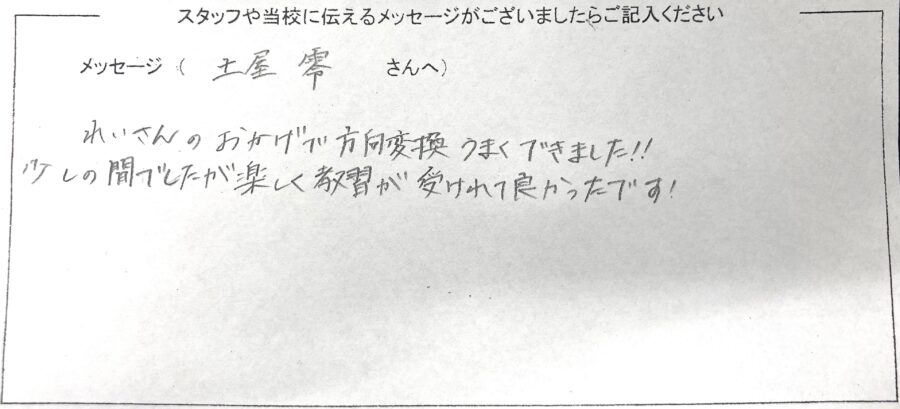 スタッフや当校に伝えるメッセージがございましたらご記入ください
メッセージ ( 土屋 零 さんへ)
れいさんのおかげで方向変換うまくできました!!
少しの間でしたが楽しく教習が受けれて良かったです!